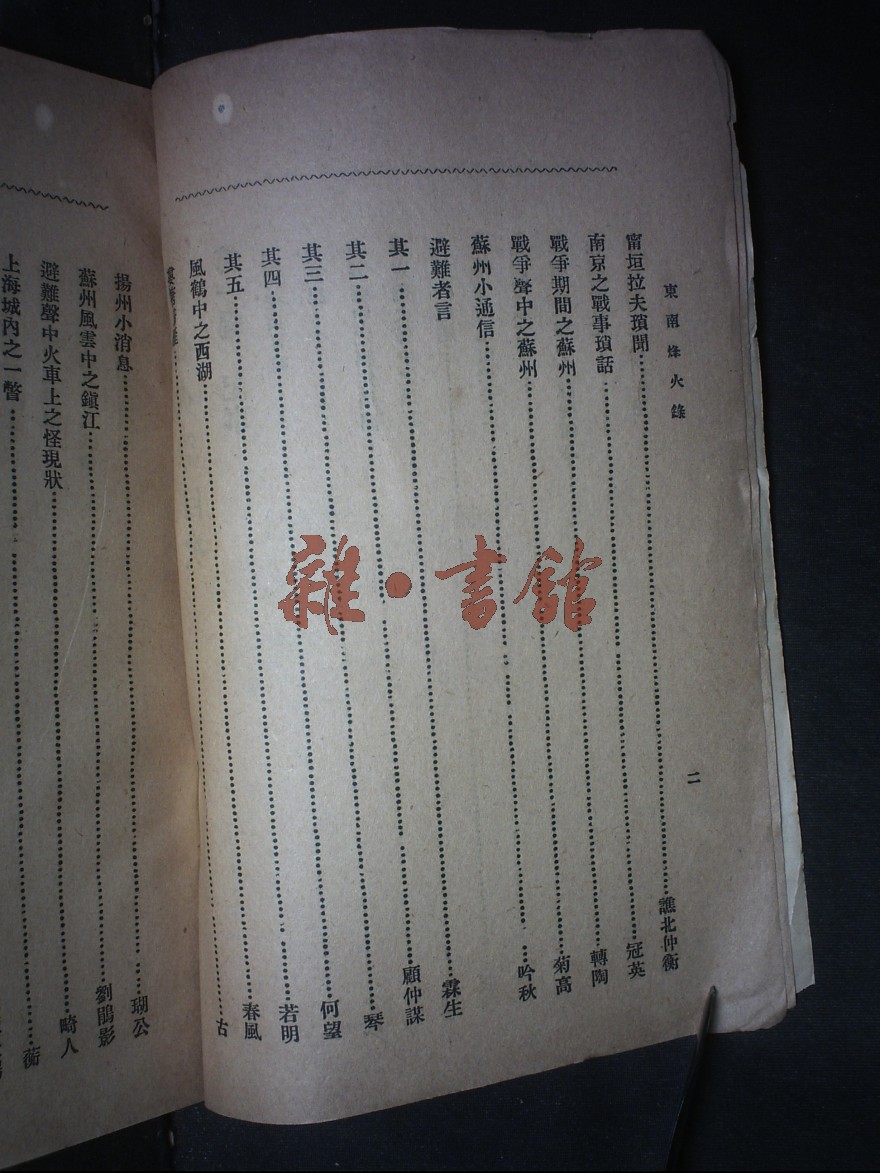 東南烽火錄
二
甯垣拉夫瑣聞……譙北仲衡
南京之戰事瑣話……冠英
戰爭期間之蘇州……轉陶
戰爭聲中之蘇州……菊高
蘇州小通信……吟秋
避難者言
其一……霖生
其二……顧仲謀
其三……琴
其四……何望
其五……若明
風鶴中之西湖……春風
……古
揚州小消息……瑚公
蘇州風雲中之鎮江……劉鵑影
避難聲中火車上之怪現狀……畸人
上海城內之一瞥……
雜·書館